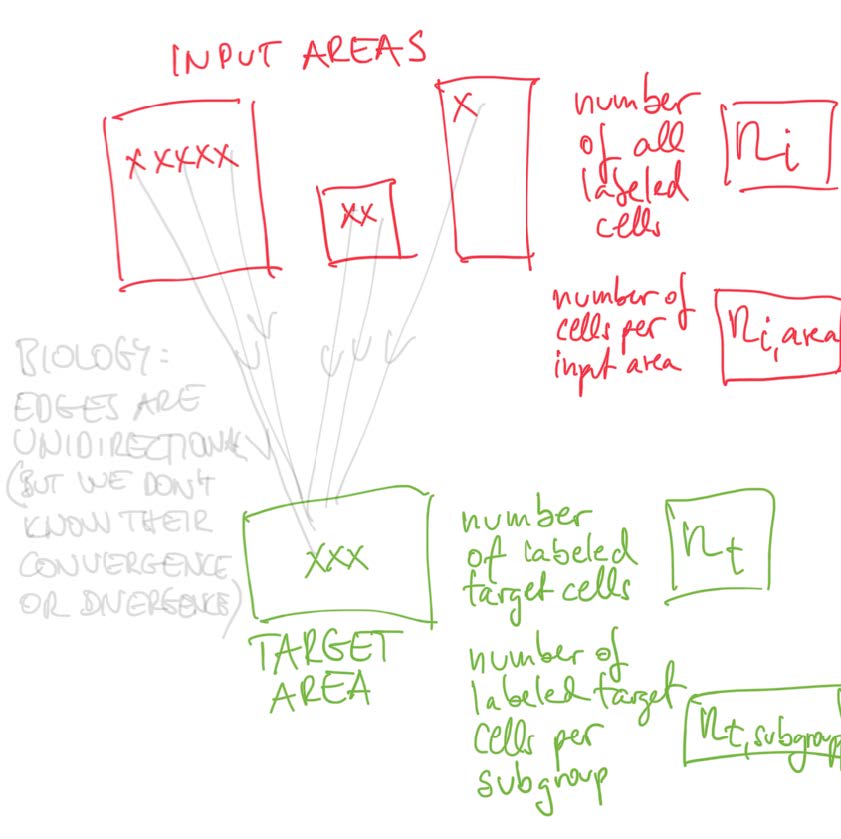 INPUT AREAS
X XXXX
XX
X
number
of all
labeled
cells
ni
number of
cells per
input area
ni, area
BIOLOGY:
EDGES ARE
UNIDIRECTIONAL
(BUT WE DON'T
KNOW THEIR
CONVERGENCE
OR DIVERGENCE)
XXX
TARGET
AREA
number
of labeled
target cells
nt
number of
labeled target
cells per
subgroup
nt, subgroup